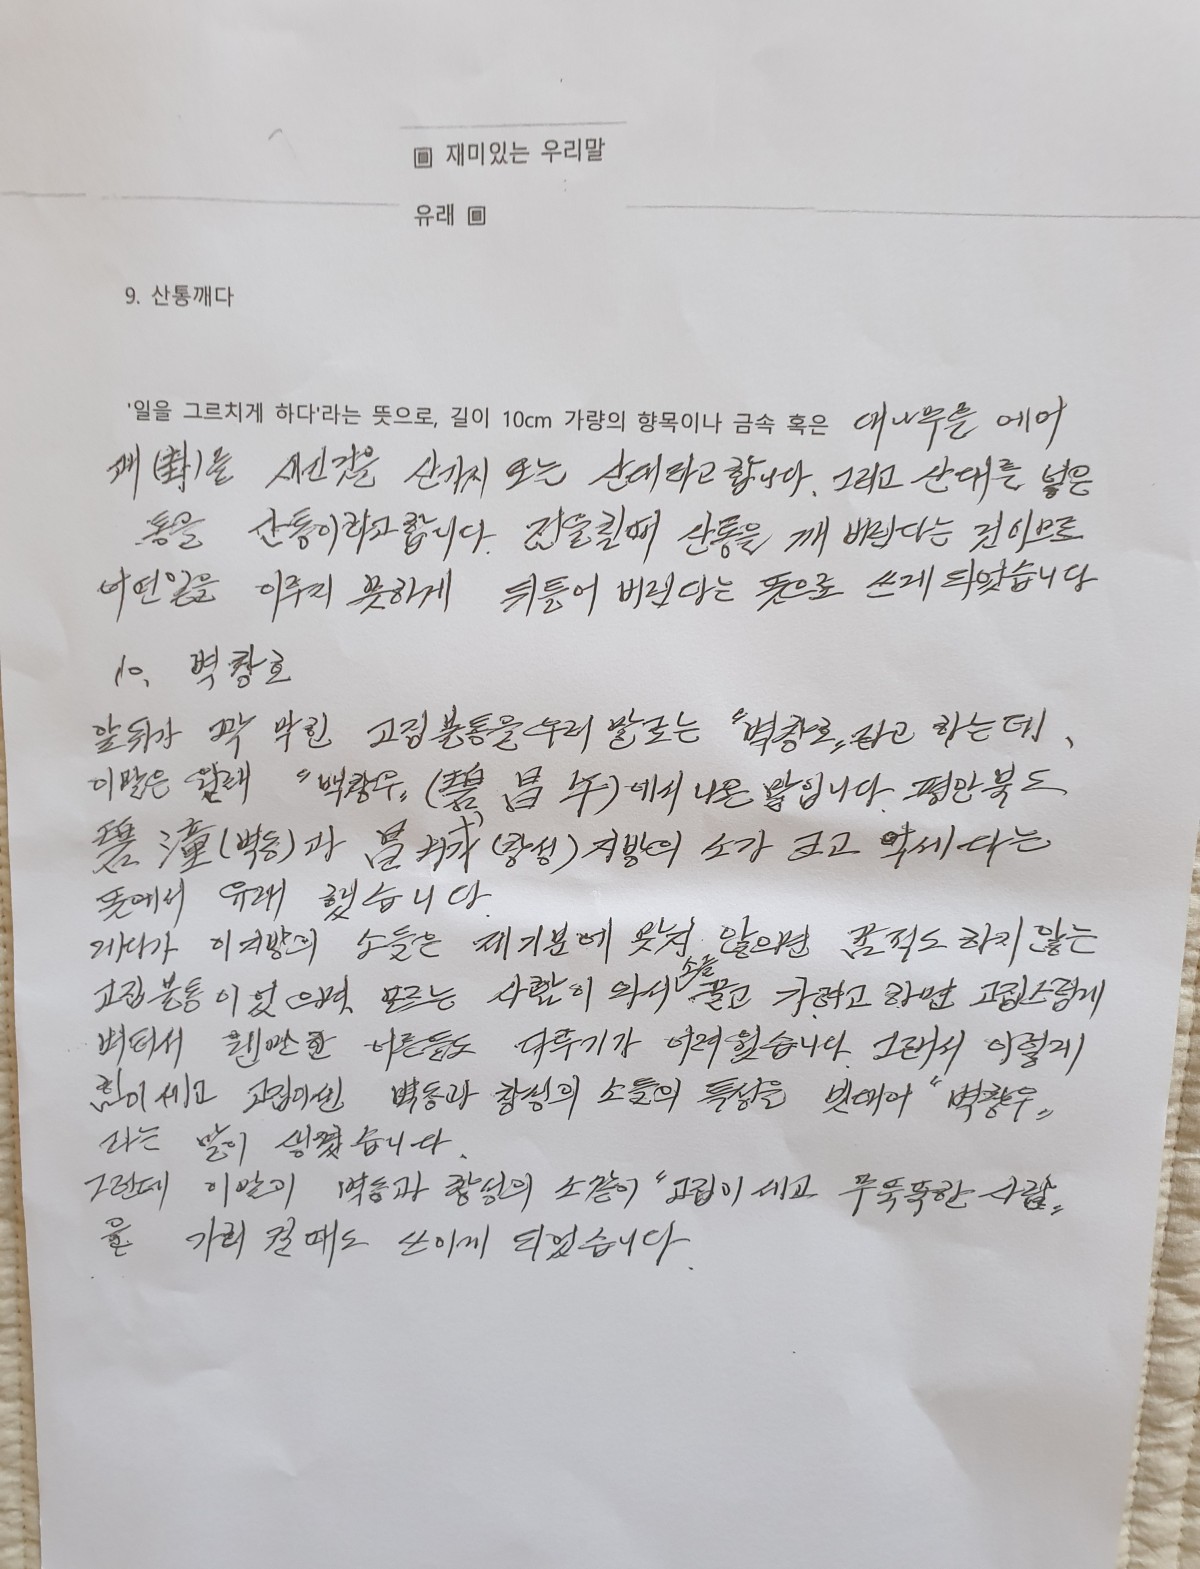 ▣ 재미있는 우리말
유래 ▣
9. 산통깨다
'일을 그르치게 하다'라는 뜻으로, 길이 10cm 가량의 향목이나 금속 혹은 대나무를 에어
괘()를 새긴것을 산가지 또는 산대라고 합니다. 그리고 산대를 넣은
통을 산통이라고 합니다. 점을칠때 산통을 깨 버린다는 것이므로
어떤일을 이루지 못하게 뒤틀어 버린다는 뜻으로 쓰게 되었습니다
10. 벽창호
앞뒤가 꽉 막힌 고집불통을 우리 말로는 "벽창호"라고 하는데,
이말은 원래 "벽창우"(碧昌牛)에서 나온 말입니다. 평안북도
碧潼(벽동)과 昌城(창성)지방의 소가 크고 억세다는
뜻에서 유래 했습니다.
게다가 이지방의 소들은 제기분에 맞지 않으면 꿈적도 하지 않는
고집불통이었으며, 모르는 사람이 와서 소를 끌고 가려고 하면 고집스럽게
버텨서 웬만한 어른들도 다루기가 어려웠습니다. 그래서 이렇게
힘이세고 고집이센 벽동과 창성의 소들의 특성을 빗대어 "벽창우"
라는 말이 생겼습니다.
그런데 이말이 벽동과 창성의 소같이 "고집이 세고 무뚝뚝한 사람"
을 가리 킬때도 쓰이게 되었습니다.